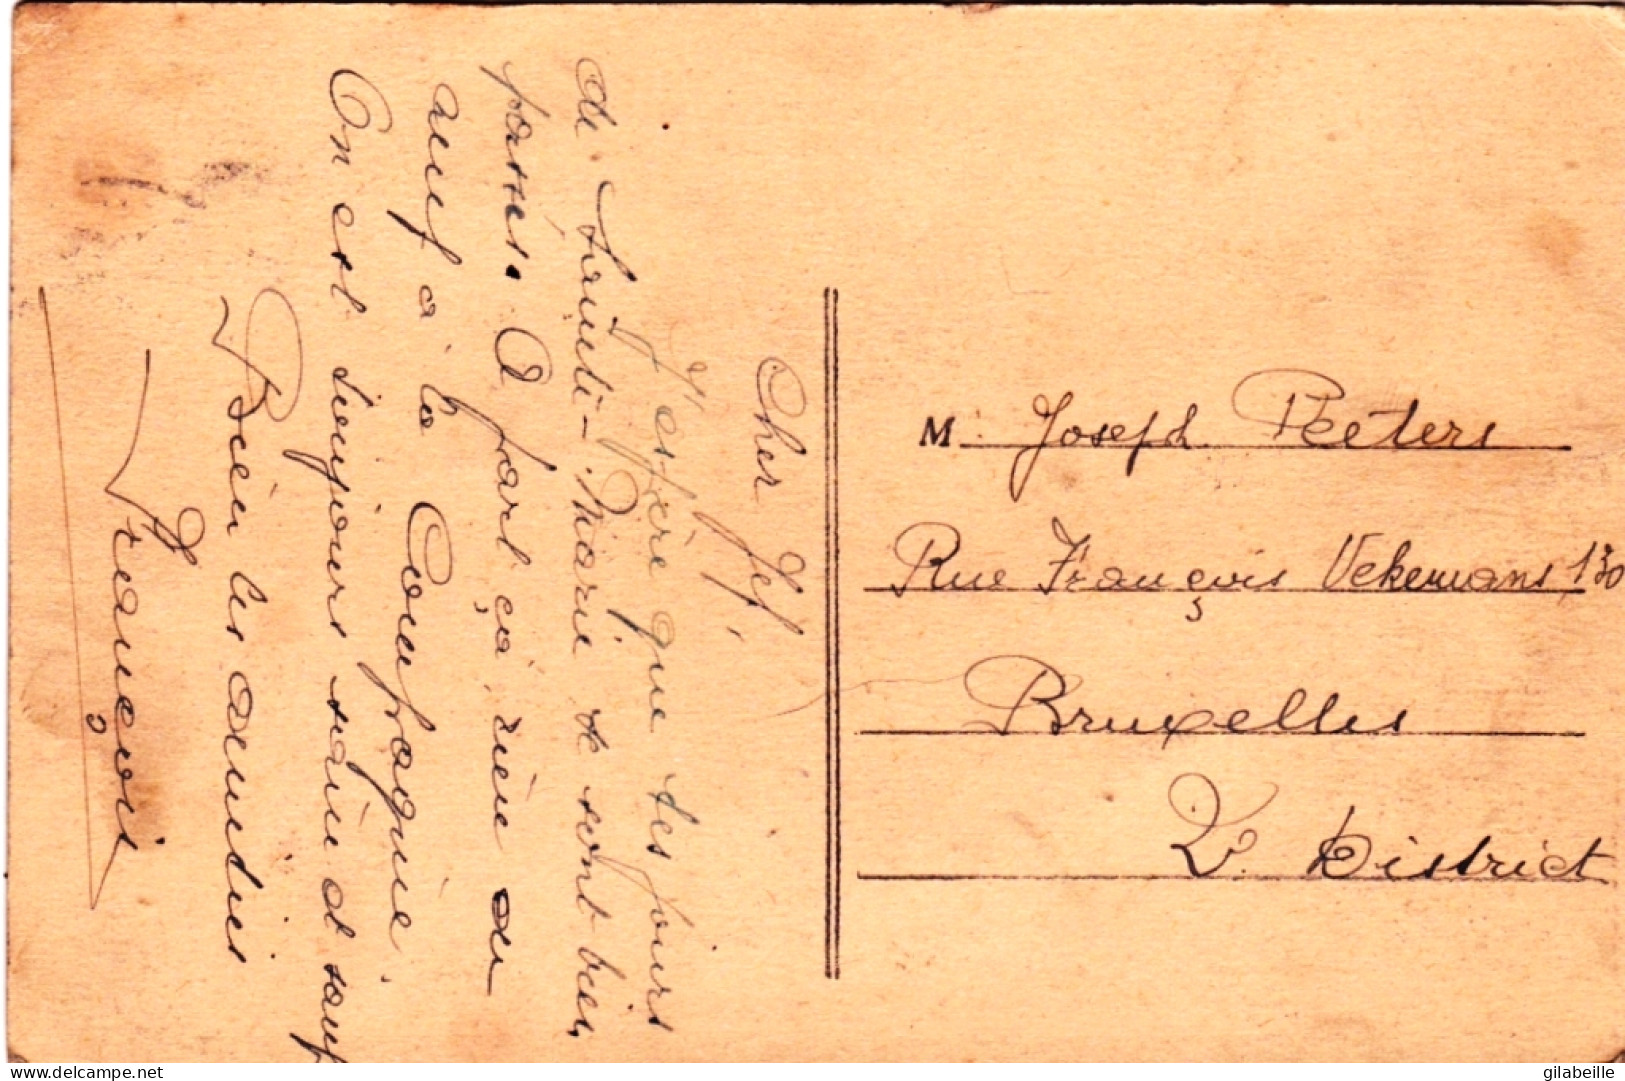 Cher Jef,
J'espère que tes jours
de Sainte-Marie se sont bien
passés. A part ça rien de
neuf à la Compagnie
On est toujours sain et sauf
Bien les amities
François
M. Joseph Peeters
Rue François Vekemans 130
Bruxelles
2e District
delcampe.net
gilabeille